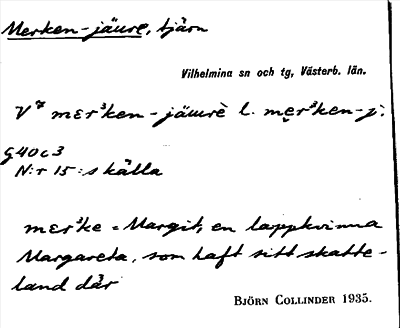 Merken-jäure, tjärn
Vilhelmina sn och tg, Västerb. län.
V⁷ mɛrˀken-jäurè l. mẹrˀken-j.
G40c3
N:r 15:s källa
mɛrˀke = Margit, en lappkvinna
Margareta, som haft sitt skatte-
land där
BJÖRN COLLINDER 1935.